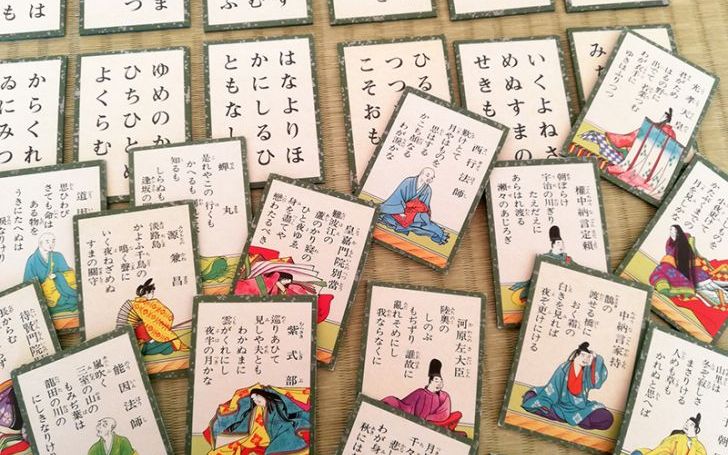 からくれ
ゐにみつ
ゆめのか
ひちひと
よくらむ
はなよりほ
かにしるひ
ともなし
ひる
つつ
こそおも
いくよねさ
めぬすまの
せきも
光孝天皇
君がため
はるの野に
出でて若菜つむ
わが衣手に
ゆきはふりつつ
西行法師
歎けとて
月やはものを
思はする
かこち顔なる
わが涙かな
権中納言定頼
朝ぼらけ
宇治の川ぎり
たえだえに
あらはれ渡る
瀬々のあじろぎ
蝉丸
是れやこの
行くも
かへるも
知るも
しらぬも
逢坂の
道因
思ひわび
さても命は
ある物を
うきにたへぬは
源兼昌
淡路島
かよふ千鳥の
鳴く聲に
いく夜ねざめぬ
すまの關守
皇嘉門院別當
難波江の
蘆のかり寝の
ひと夜ゆゑ
身を盡してや
戀わたるべき
紫式部
巡りあひて
見しや夫とも
わかぬまに
雲がくれにし
夜半の月かな
河原左大臣
陸奥の
しのぶ
もぢずり誰故に
亂れそめにし
我ならなくに
中納言家持
鵲の
渡せる橋に
おく霜の
白きを見れば
夜ぞ更けにける
待賢門院
長からむ
能因法師
嵐吹く
三室の山の
もみぢ葉は
龍田の川の
にしきなりけり
まさりける
人めも草も
かれぬと思へば